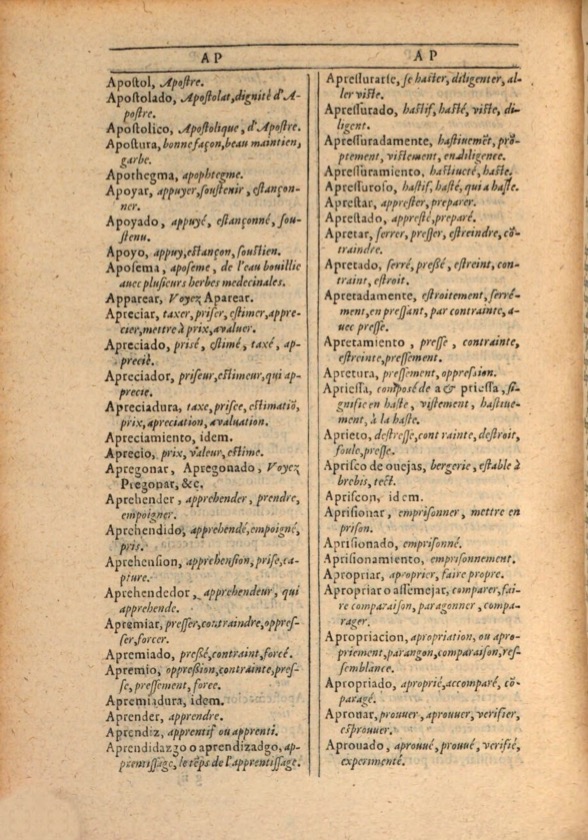 AP
Apostol, Apostre.
Apostolado, Apostolat, dignité d'A-
postre.
Apostolico, Apostolique, d'Apostre.
Apostura, bonne façon, beau maintien,
garbe.
Apothegma, apophtegme.
Apoyar, appuyer, soustenir, estançon-
ner.
Apoyado, appuyé, estançonné, sou-
stenu.
Apoyo, appuy, estançon, soustien.
Aposema, aposeme, de l'eau bouillie
auec plusieurs herbes medecinales.
Apparear, Voyez Aparear.
Apreciar, taxer, priser, estimer, appre-
cier, mettre à prix, avaluer.
Apreciado, prisé, estimé, taxé, ap-
precié.
Apreciador, priseur, estimeur, qui ap-
precie.
Apreciadura, taxe, prisee, estimatiõ,
prix, apreciation, avaluation.
Apreciamiento, idem.
Aprecio, prix, valeur, estime.
Apregonar, Apregonado, Voyez
Pregonar, &c.
Aprehender, apprehender, prendre,
empoigner.
Aprehendido, apprehendé, empoigné,
pris.
Aprehension, apprehension, prise, ca-
pture.
Aprehendedor, apprehendeur, qui
apprehende.
Apremiar, presser, contraindre, oppres-
ser, forcer.
Apremiado, pressé, contraint, forcé.
Apremio, oppression, contrainte, pres-
se, pressement, force.
Apremiadura, idem.
Aprender, apprendre.
Aprendiz, apprentif ou apprenti.
Aprendidazgo o aprendizadgo, ap-
prentissage, le tẽps de l'apprentissage.
AP
Apressurarse, se haster, diligenter, al-
ler viste.
Apressurado, hastif, hasté, viste, di-
ligent.
Apressuradamente, hastiuemẽt, prõ-
ptement, vistement, en diligence.
Apressuramiento, hastiueté, haste.
Apressuroso, hastif, hasté, qui a haste.
Aprestar, apprester, preparer.
Aprestado, appresté, preparé.
Apretar, serrer, presser, estreindre, cõ-
traindre.
Apretado, serré, pressé, estreint, con-
traint, estroit.
Apretadamente, estroitement, serré-
ment, en pressant, par contrainte, a-
uec presse.
Apretamiento, presse, contrainte,
estreinte, pressement.
Apretura, pressement, oppression.
Apriessa, composé de a & priessa, si-
gnifie en haste, vistement, hastiue-
ment, à la haste.
Aprieto, destresse, contrainte, destroit,
foule, presse.
Aprisco de ouejas, bergerie, estable à
brebis, tect.
Apriscon, idem.
Aprisionar, emprisonner, mettre en
prison.
Aprisionado, emprisonné.
Aprisionamiento, emprisonnement.
Apropriar, aproprier, faire propre.
Apropriar o assemejar, comparer, fai-
re comparaison, paragonner, compa-
rager.
Apropriacion, apropriation, ou apro-
priement, parangon, comparaison, res-
semblance.
Apropriado, aproprié, accomparé, cõ-
paragé.
Aprouar, prouuer, aprouuer, verifier,
esprouuer.
Aprouado, aprouué, prouué, verifié,
experimenté.